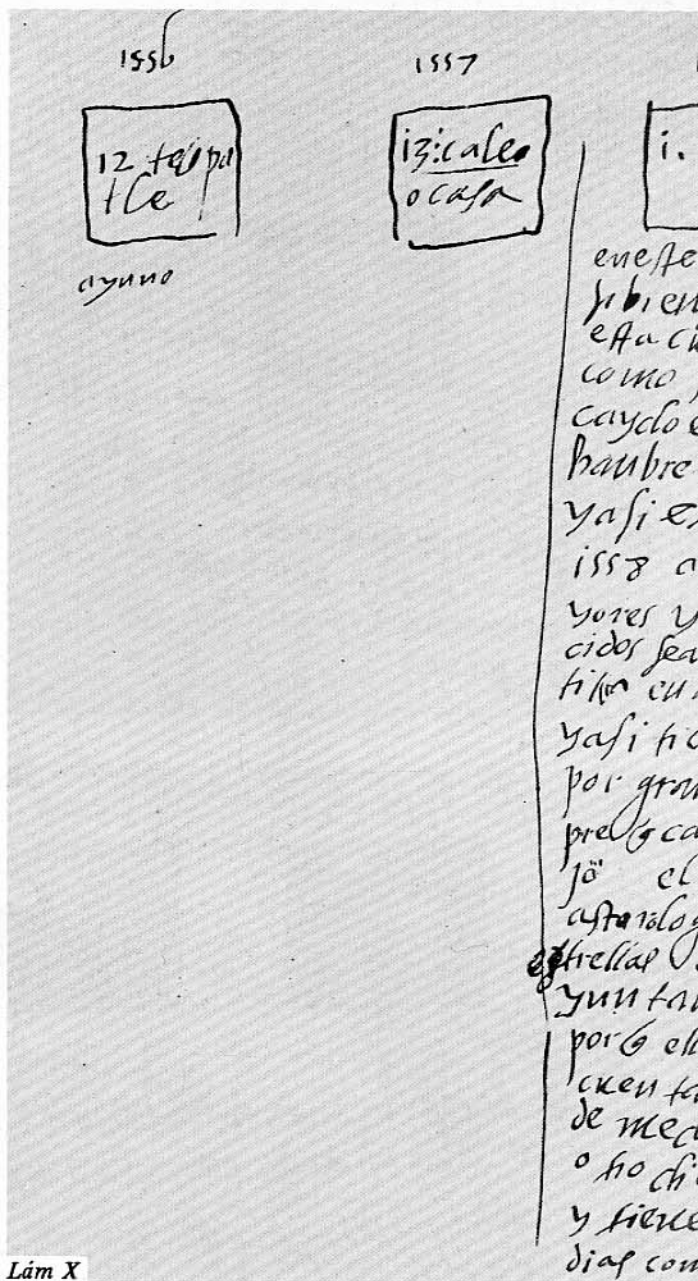 1556
12 tecpa
tle
ayuno
1557
13: cale
o casa
i.
eneste
si bien
esta ciu
como
caydo e
hambre
yasi es
1558 a
yores y
cidos sea
en
yasi tie
por gran
pre q ca
jo el
astorolog
estrellas
yun tan
por q ell
cuenta
de med
o ho di
y tierce
dias com
Lám X